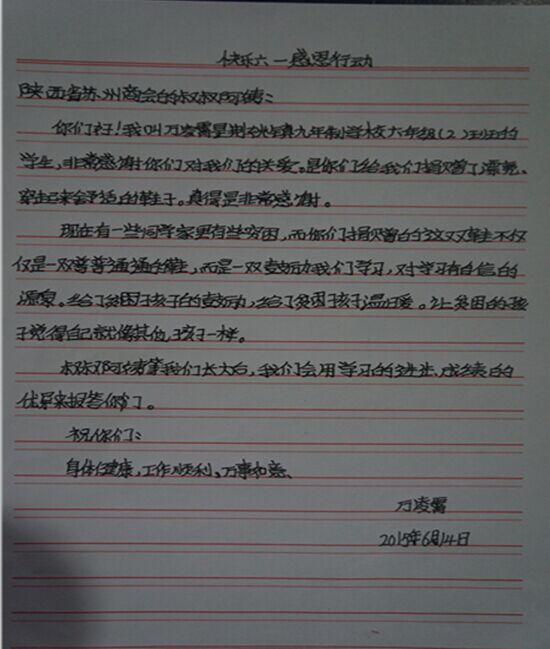 快乐六一感恩行动
陕西省苏州商会的叔叔阿姨:
你们好!我叫万凌霄是荆峪镇九年制学校六年级(2)班的
学生,非常感谢你们对我们的关爱。是你们给我们捐赠了漂亮、
穿起来舒适的鞋子。真得是非常感谢。
现在有一些同学家里有些穷困,而你们捐赠的这双鞋不仅
仅是一双普普通通的鞋,而是一双鼓励我们学习,对学习有自信的
源泉。给了贫困孩子的鼓励,给了贫困孩子温暖。让贫困的孩
子觉得自己就像其他孩子一样。
叔叔阿姨等我们长大后,我们会用学习的进步、成绩的
优异来报答你们。
祝你们:
身体健康,工作顺利,万事如意、
万凌霄
2015年6月14日